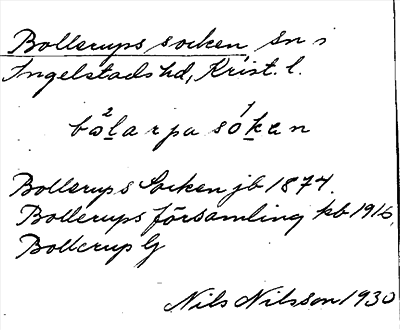 Bollerups socken Sn i
Ingelstads hd, Krist. l.
bo²larpa só¹kan
Bollerups Socken jb 1874.
Bollerups församling kb 1916,
Bollerup G
Nils Nilsson 1930